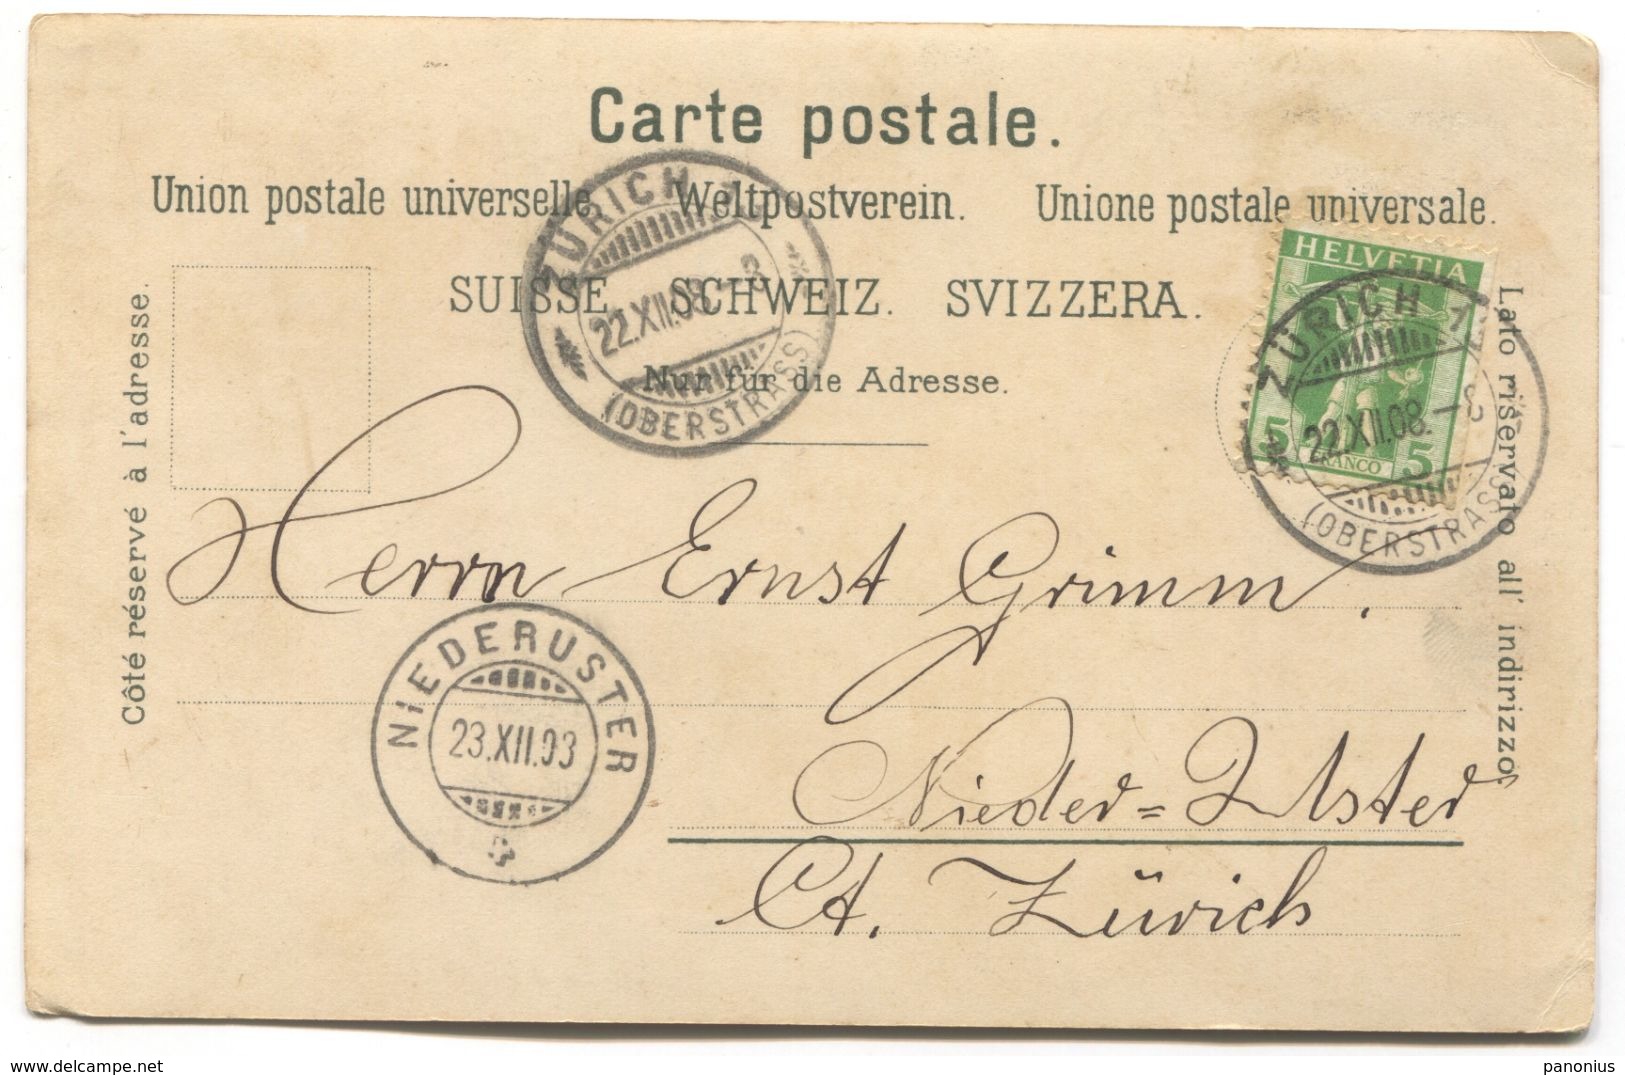 Carte postale.
Union postale universelle. Weltpostverein. Unione postale universale.
SUISSE. SCHWEIZ. SVIZZERA.
Nur für die Adresse.
Côté réservé à l'adresse.
Lato riservato all' indirizzo.
ZÜRICH
22.XII.08.-8
(OBERSTRASS)
HELVETIA
5 5
FRANCO
ZÜRICH
22.XII.08.-8
(OBERSTRASS)
Herrn Ernst Grimm.
NIEDERUSTER
23.XII.03
Nieder=Uster
Ct. Zürich
delcampe.net
panonius